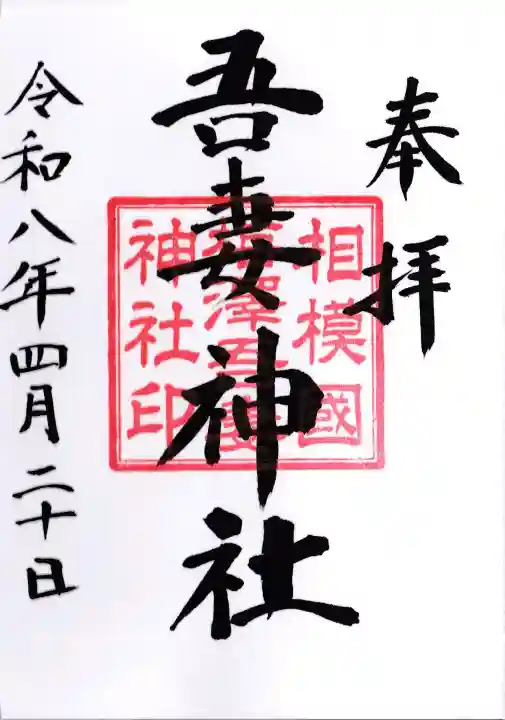 奉拝
吾妻神社
相模國
澤吾妻
神社印
令和八年四月二十日